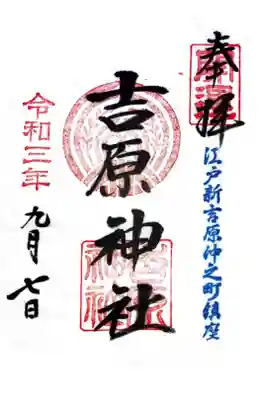 奉拝
江戸新吉原仲之町鎮座
吉原神社
令和三年
九月七日